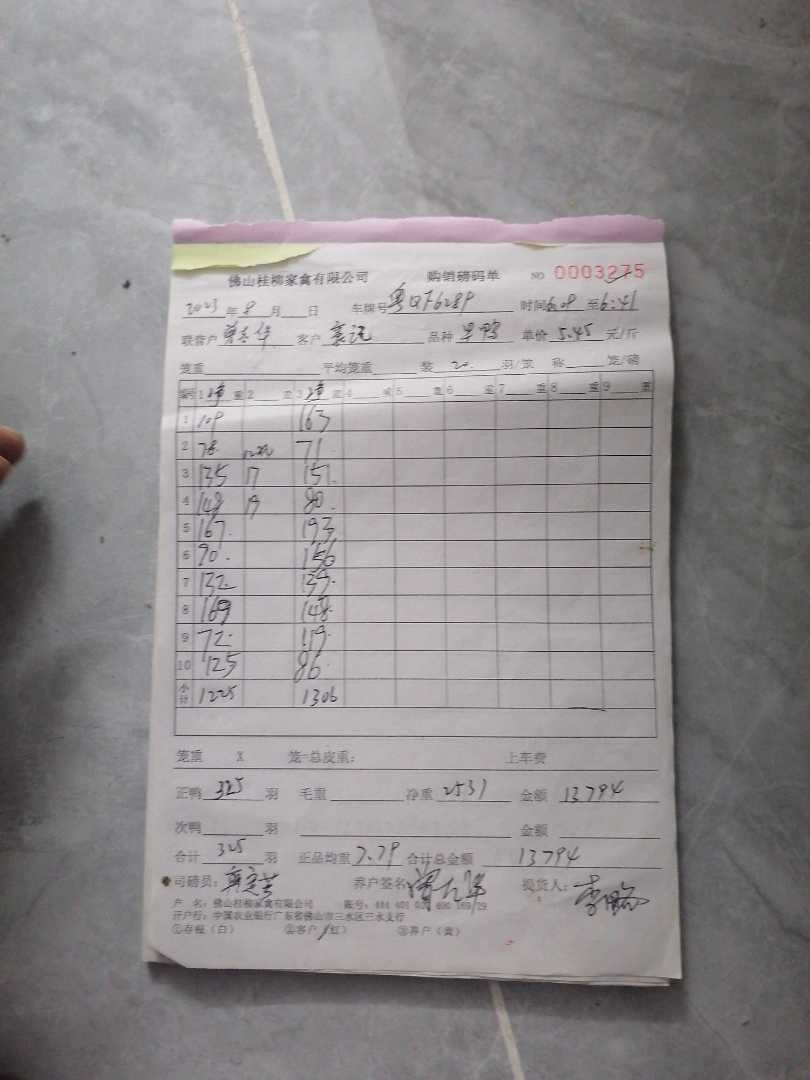 佛山桂柳家禽有限公司 购销磅码单 NO 0003275
2023年8月 日 车牌号 时间6:09至6:41
联营户 客户 品种 单价5.45元/斤
笼重 平均笼重 装20.羽/笼 称 笼/磅
编号 1净重 2 重 3净重 4 重 5 重 6 重 7 重 8 重 9 重
1 109 163
2 78. 71
3 135 17 151.
4 148 19 80.
5 167. 193
6 90. 156
7 132. 139.
8 169 148.
9 72. 119.
10 125 86.
小计 1225 1306
笼重 X 笼=总皮重: 上车费
正鸭325羽 毛重 净重2531 金额13794
次鸭 羽 金额
合计325羽 正品均重7.79 合计总金额13794
司磅员: 养户签名 提货人:
户 名:佛山桂柳家禽有限公司 账号:
开户行:中国农业银行广东省佛山市三水区三水支行
①存根(白) ②客户(红) ③养户(黄)